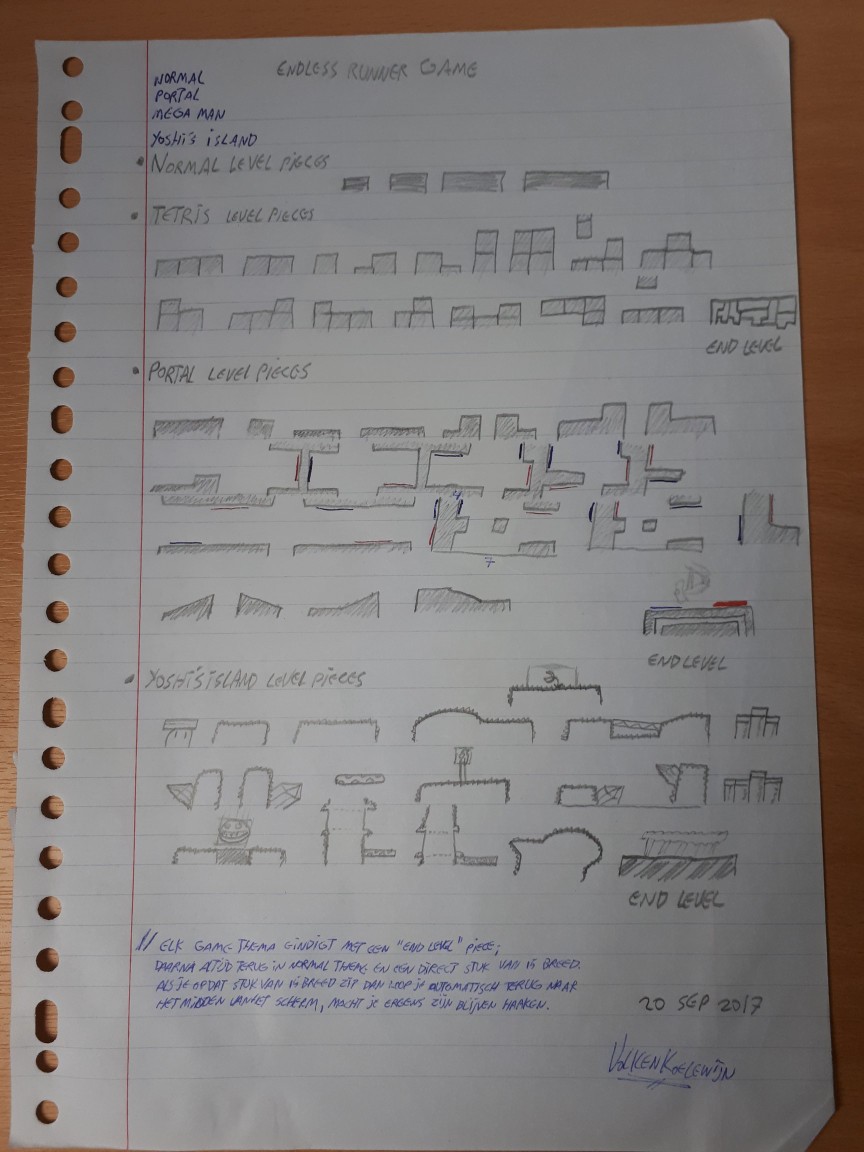 ENDLESS RUNNER GAME
NORMAL
PORTAL
MEGA MAN
YOSHI'S ISLAND
• NORMAL LEVEL PIECES
• TETRIS LEVEL PIECES
END LEVEL
• PORTAL LEVEL PIECES
4
7
END LEVEL
• YOSHI'S ISLAND LEVEL PIECES
END LEVEL
// ELK GAME-THEMA EINDIGT MET EEN "END LEVEL" PIECE;
DAARNA ALTIJD TERUG IN NORMAL THEME EN EEN DIRECT STUK VAN 15 BREED.
ALS JE OP DAT STUK VAN 15 BREED ZIT DAN LOOP JE AUTOMATISCH TERUG NAAR
HET MIDDEN VAN HET SCHERM, MOCHT JE ERGENS ZIJN BLIJVEN HAKEN.
20 SEP 2017
VOLKEN KOELEWIJN